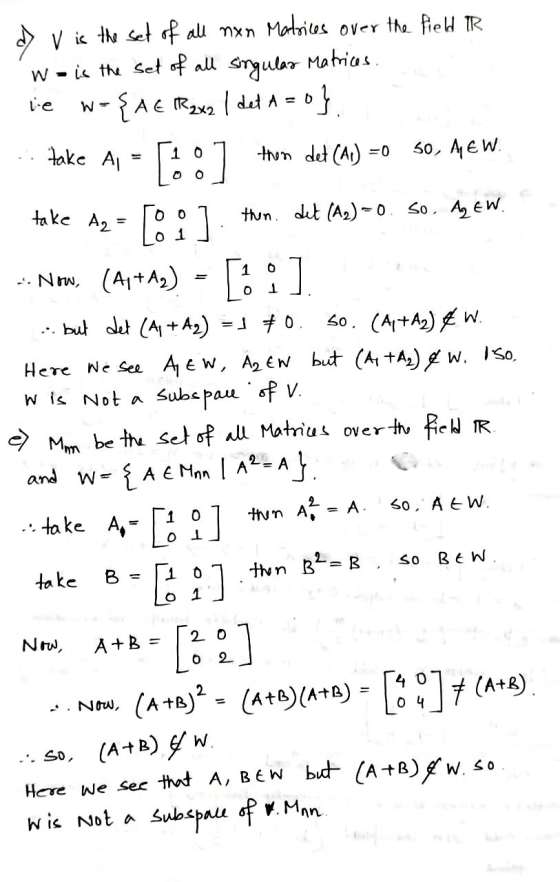 d) V is the set of all nxn Matrices over the field IR
W - is the set of all singular Matrices.
i.e W = { A ∈ IR₂ₓ₂ | det A = 0 }.
∴ take A₁ = [1 0; 0 0] then det (A₁) = 0 so, A₁ ∈ W.
take A₂ = [0 0; 0 1]. then. det (A₂) = 0. so. A₂ ∈ W.
∴ Now, (A₁+A₂) = [1 0; 0 1].
∴ but det (A₁+A₂) = 1 ≠ 0. so. (A₁+A₂) ∉ W.
Here We see A₁ ∈ W, A₂ ∈ W but (A₁+A₂) ∉ W. so,
W is Not a subspace of V.
e) Mnn be the set of all Matrices over the field IR.
and W = { A ∈ Mnn | A² = A }.
∴ take A = [1 0; 0 1] then A² = A. so, A ∈ W.
take B = [1 0; 0 1]. then B² = B, so B ∈ W.
Now, A+B = [2 0; 0 2]
∴ Now, (A+B)² = (A+B)(A+B) = [4 0; 0 4] ≠ (A+B).
∴ so, (A+B) ∉ W.
Here We see that A, B ∈ W but (A+B) ∉ W. so.
W is Not a subspace of Mnn